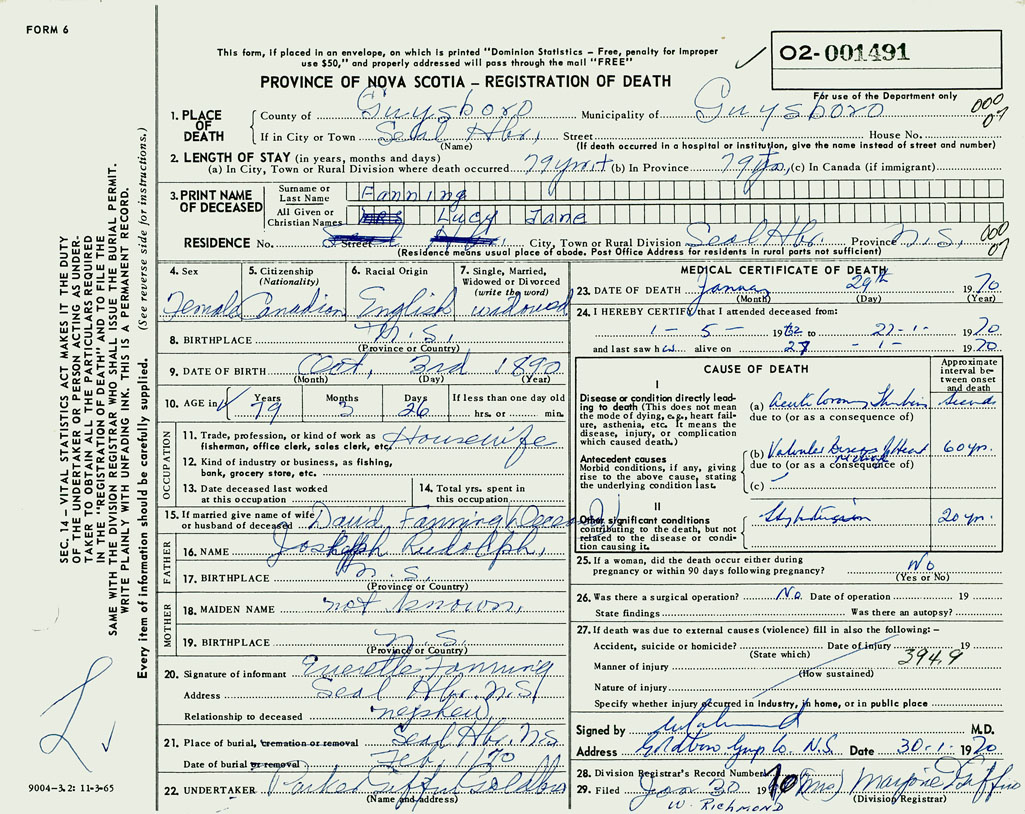 FORM 6
This form, if placed in an envelope, on which is printed "Dominion Statistics – Free, penalty for improper
use $50," and properly addressed will pass through the mail "FREE"
02-001491
PROVINCE OF NOVA SCOTIA – REGISTRATION OF DEATH
For use of the Department only
1. PLACE OF DEATH County of Guysboro Municipality of Guysboro 000 07
If in City or Town Seal Hbr, Street House No.
(Name) (If death occurred in a hospital or institution, give the name instead of street and number)
2. LENGTH OF STAY (in years, months and days)
(a) In City, Town or Rural Division where death occurred 79 yrs + (b) In Province 79 yrs, (c) In Canada (if immigrant)
3. PRINT NAME OF DECEASED
Surname or Last Name Fanning
All Given or Christian Names MRS Lucy Jane
RESIDENCE No. Street City, Town or Rural Division Seal Hbr. Province N.S. 000 07
(Residence means usual place of abode. Post Office Address for residents in rural parts not sufficient)
4. Sex
Female
5. Citizenship
(Nationality)
Canadian
6. Racial Origin
English
7. Single, Married,
Widowed or Divorced
(write the word)
widowed
8. BIRTHPLACE N.S.
(Province or Country)
9. DATE OF BIRTH Oct, 3rd 1890
(Month) (Day) (Year)
10. AGE in Years Months Days If less than one day old
79 3 26 hrs. or min.
OCCUPATION
11. Trade, profession, or kind of work as
fisherman, office clerk, sales clerk, etc. Housewife
12. Kind of industry or business, as fishing,
bank, grocery store, etc.
13. Date deceased last worked
at this occupation
14. Total yrs. spent in
this occupation
15. If married give name of wife
or husband of deceased David Fanning
FATHER
16. NAME Joseph Rudolph,
17. BIRTHPLACE N.S.
(Province or Country)
MOTHER
18. MAIDEN NAME not known,
19. BIRTHPLACE N.S.
(Province or Country)
20. Signature of informant Everette Fanning
Address Seal Hbr. N.S,
Relationship to deceased nephew
21. Place of burial, cremation or removal Seal Hbr. N.S
Date of burial or removal Feb, 1/70
22. UNDERTAKER Parker Giffin Goldboro
(Name and address)
MEDICAL CERTIFICATE OF DEATH
23. DATE OF DEATH January 29th 1970
(Month) (Day) (Year)
24. I HEREBY CERTIFY that I attended deceased from:
1 – 5 – 19 to 27 – 1 – 1970
and last saw h alive on 27 – 1 – 1970
CAUSE OF DEATH
Approximate
interval be-
tween onset
and death
I
Disease or condition directly lead-
ing to death (This does not mean
the mode of dying, e.g., heart fail-
ure, asthenia, etc. It means the
disease, injury, or complication
which caused death.)
(a) Acute Coronary Thrombosis
due to (or as a consequence of)
Antecedent causes
Morbid conditions, if any, giving
rise to the above cause, stating
the underlying condition last.
(b) Valvular Disease of Heart 60 yrs.
due to (or as a consequence of)
(c)
II
Other significant conditions
contributing to the death, but not
related to the disease or condi-
tion causing it.
Hypertension 20 yrs.
25. If a woman, did the death occur either during
pregnancy or within 90 days following pregnancy? No
(Yes or No)
26. Was there a surgical operation? No. Date of operation 19
State findings Was there an autopsy?
27. If death was due to external causes (violence) fill in also the following: –
Accident, suicide or homicide? Date of injury 19
(State which) 394.9
Manner of injury
(How sustained)
Nature of injury
Specify whether injury occurred in industry, in home, or in public place
Signed by M.D.
Address Goldboro Guys Co. N.S. Date 30-1-1970
28. Division Registrar's Record Number
29. Filed Jan 30 1970 (Mrs) Marjorie Giffin
W. RICHMOND (Division Registrar)
SEC. 14 – VITAL STATISTICS ACT MAKES IT THE DUTY
OF THE UNDERTAKER OR PERSON ACTING AS UNDER-
TAKER TO OBTAIN ALL THE PARTICULARS REQUIRED
IN THE "REGISTRATION OF DEATH" AND TO FILE THE
SAME WITH THE DIVISION REGISTRAR WHO SHALL ISSUE THE BURIAL PERMIT.
WRITE PLAINLY WITH UNFADING INK. THIS IS A PERMANENT RECORD.
Every item of information should be carefully supplied. (See reverse side for instructions.)
9004-3.2: 11-3-65